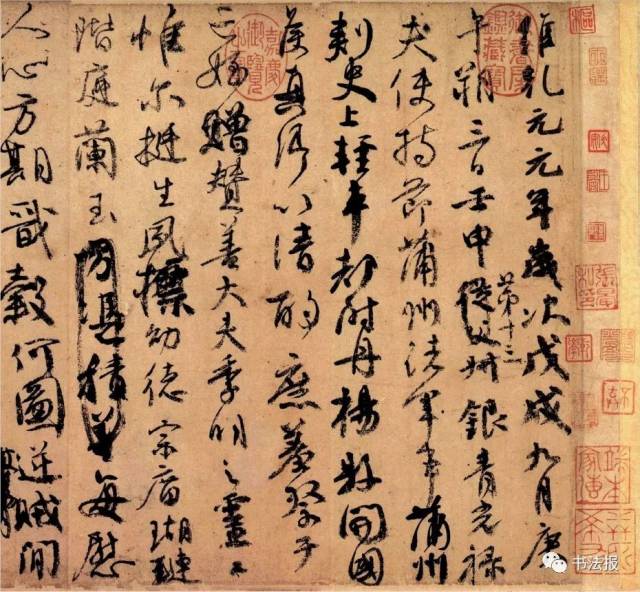 維乾元元年歲次戊戌九月庚
午朔三日壬申第十三從父銀青光祿
夫使持節蒲州諸軍事蒲州
刺史上輕車都尉丹楊縣開國
侯真卿以清酌庶羞祭于
亡姪贈贊善大夫季明之靈曰
惟爾挺生夙標幼德宗廟瑚璉
階庭蘭玉每慰
人心方期戩穀何圖逆賊間
嘉慶御覽之寶
書法报